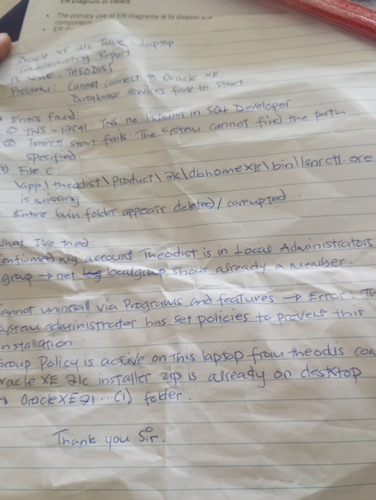 ER Diagram in DBMS
• The primary use of ER diagrams is to
component
• ER
Oracle XE 21c Issue - Laptop
Troubleshooting Report
PC Name: THEODIST
Problem: Cannot connect to Oracle XE
Database services fails to start
Errors Faced:
① TNS-12541: TNS: no listeners in SQL Developer
② lsnrctl start fails: The system cannot find the path
specified
File C
\app\theodist\product\21c\dbhomeXE\bin\lsnrctl.exe
is missing
Entire bin folder appears deleted/corrupted.
What I've tried
my account Theodist is in Local Administrators
group → net localgroup shows already a member.
Cannot uninstall via Programs and features → Error:
system administrator has set policies to prevent this
installation
Group Policy is active on this laptop from theodis
Oracle XE 21c installer zip is already on desktop
→ OracleXE21...(1) folder.
Thank you Sir.